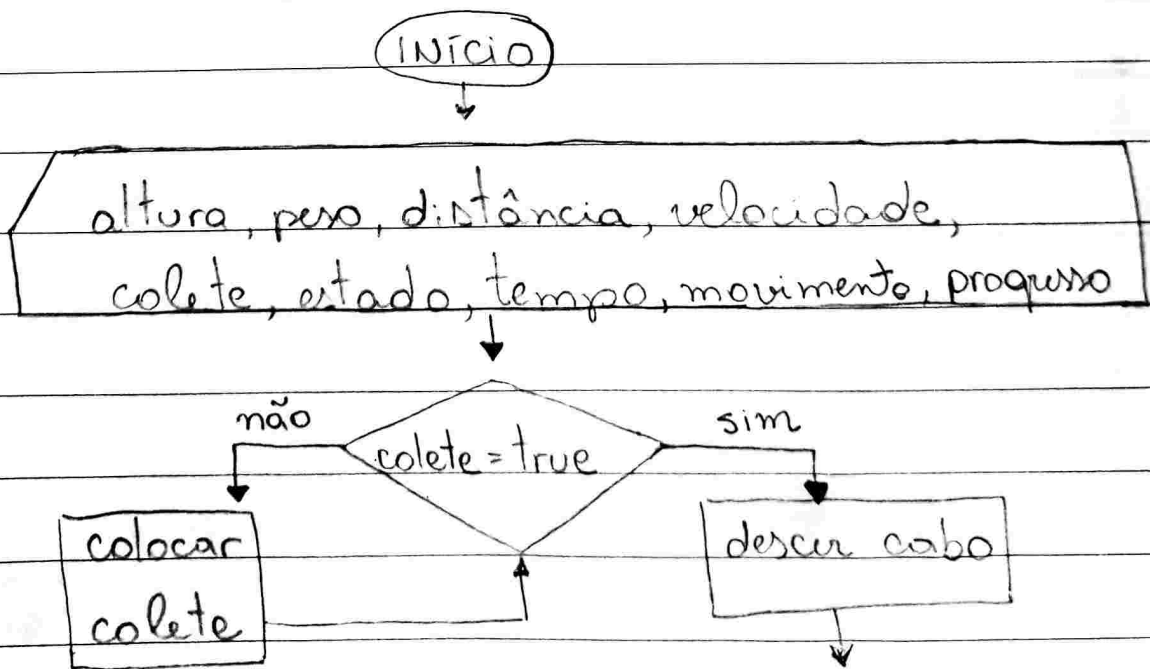 INÍCIO
altura, peso, distância, velocidade,
colete, estado, tempo, movimento, progresso
não
sim
colete = true
colocar
colete
descer cabo